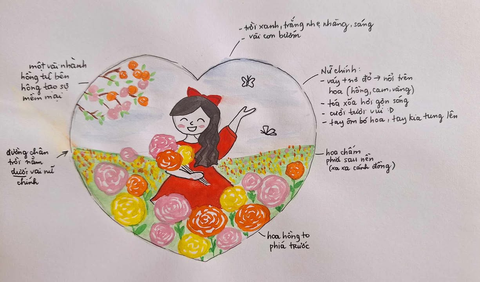 - trời xanh, trắng nhẹ nhàng, sáng
- vài con bướm
một vài nhành
hồng từ bên
hông tạo sự
mềm mại
Nữ chính:
- váy + nơ đỏ → nổi trên
hoa (hồng, cam, vàng)
- tóc xõa hơi gợn sóng
- cười tươi vui :D
- tay ôm bó hoa, tay kia tung lên
đường chân
trời nằm
dưới vai nữ
chính
hoa chấm
phía sau nền
(xa xa cánh đồng)
hoa hồng to
phía trước